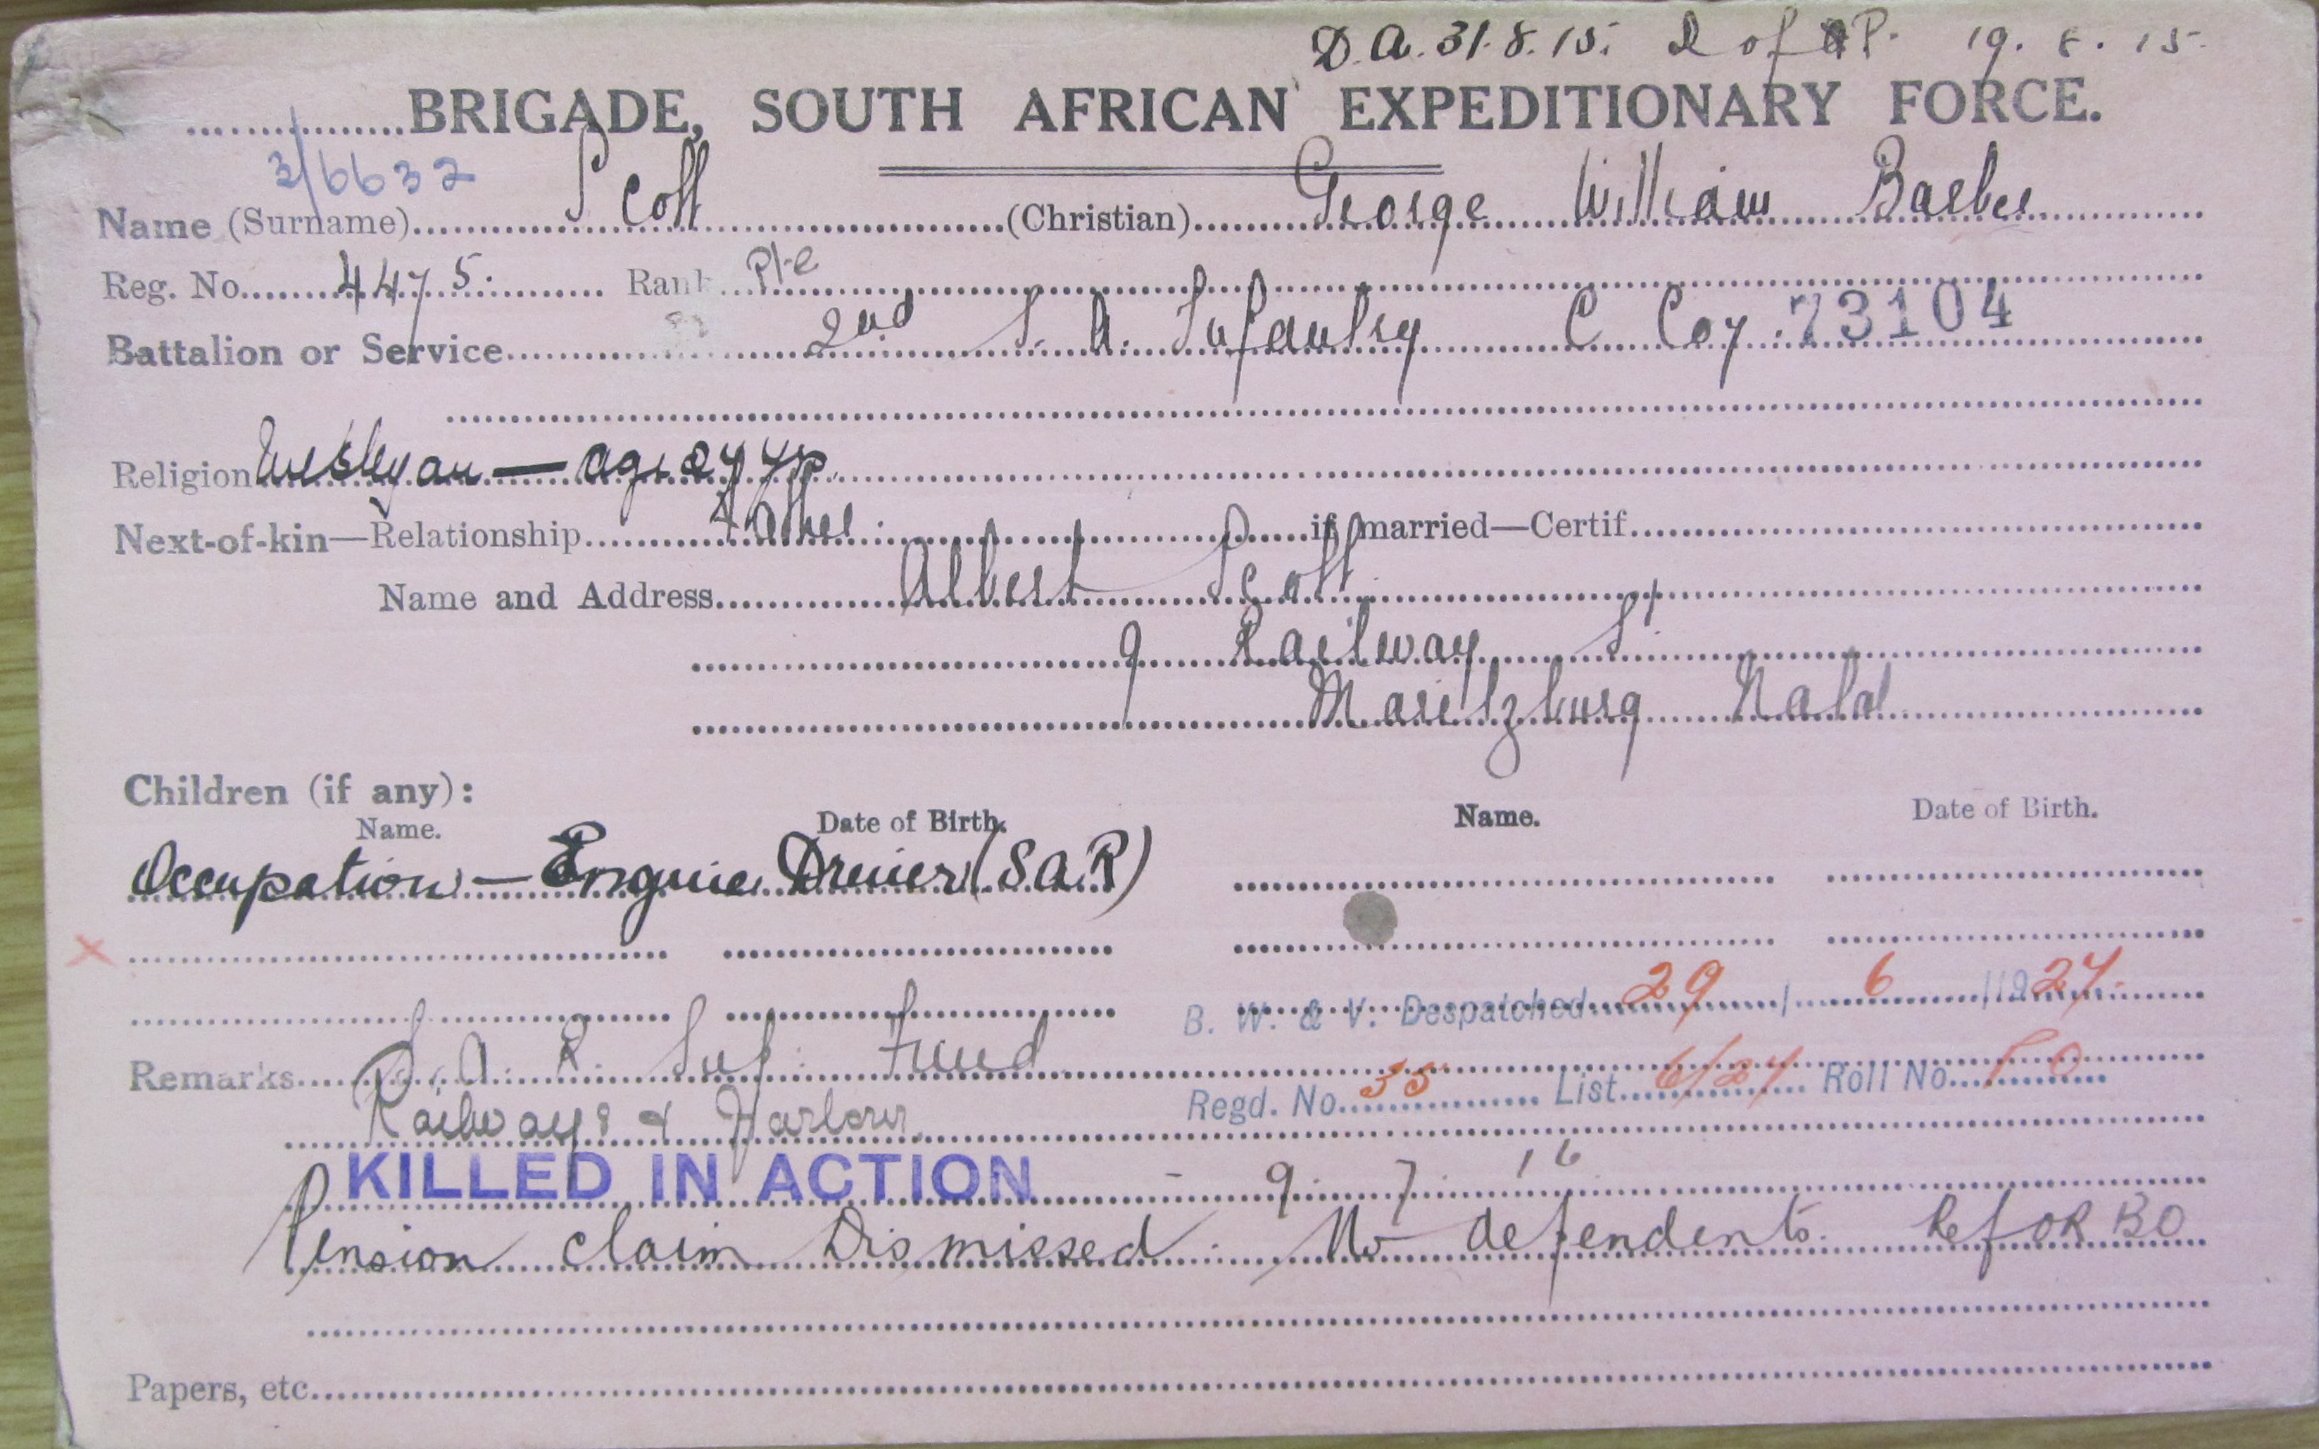 D.A. 31.8.15. D of AP. 19.8.15.
BRIGADE, SOUTH AFRICAN EXPEDITIONARY FORCE.
3/6632
Name (Surname) Scott (Christian) George William Barber
Reg. No. 4475. Rank Pte
Battalion or Service 2nd S. A. Infantry C Coy. 73104
Religion Wesleyan — age 27 yrs.
Next-of-kin—Relationship Father. if married—Certif.
Name and Address Albert Scott
9 Railway St.
Maritzburg Natal
Children (if any):
Name. Date of Birth. Name. Date of Birth.
Occupation — Engine Driver (S A R)
B. W. & V. Despatched 29 / 6 /1927.
Remarks S. A. R. Suf. Fund
Regd. No. 55 List 6/27 Roll No.
Railways & Harbour
KILLED IN ACTION - 9. 7. 16
Pension claim Dismissed. No dependents. Ref OR BO
Papers, etc.